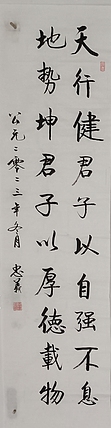 天行健君子以自强不息
地势坤君子以厚德載物
公元二零二三年冬月 忠义